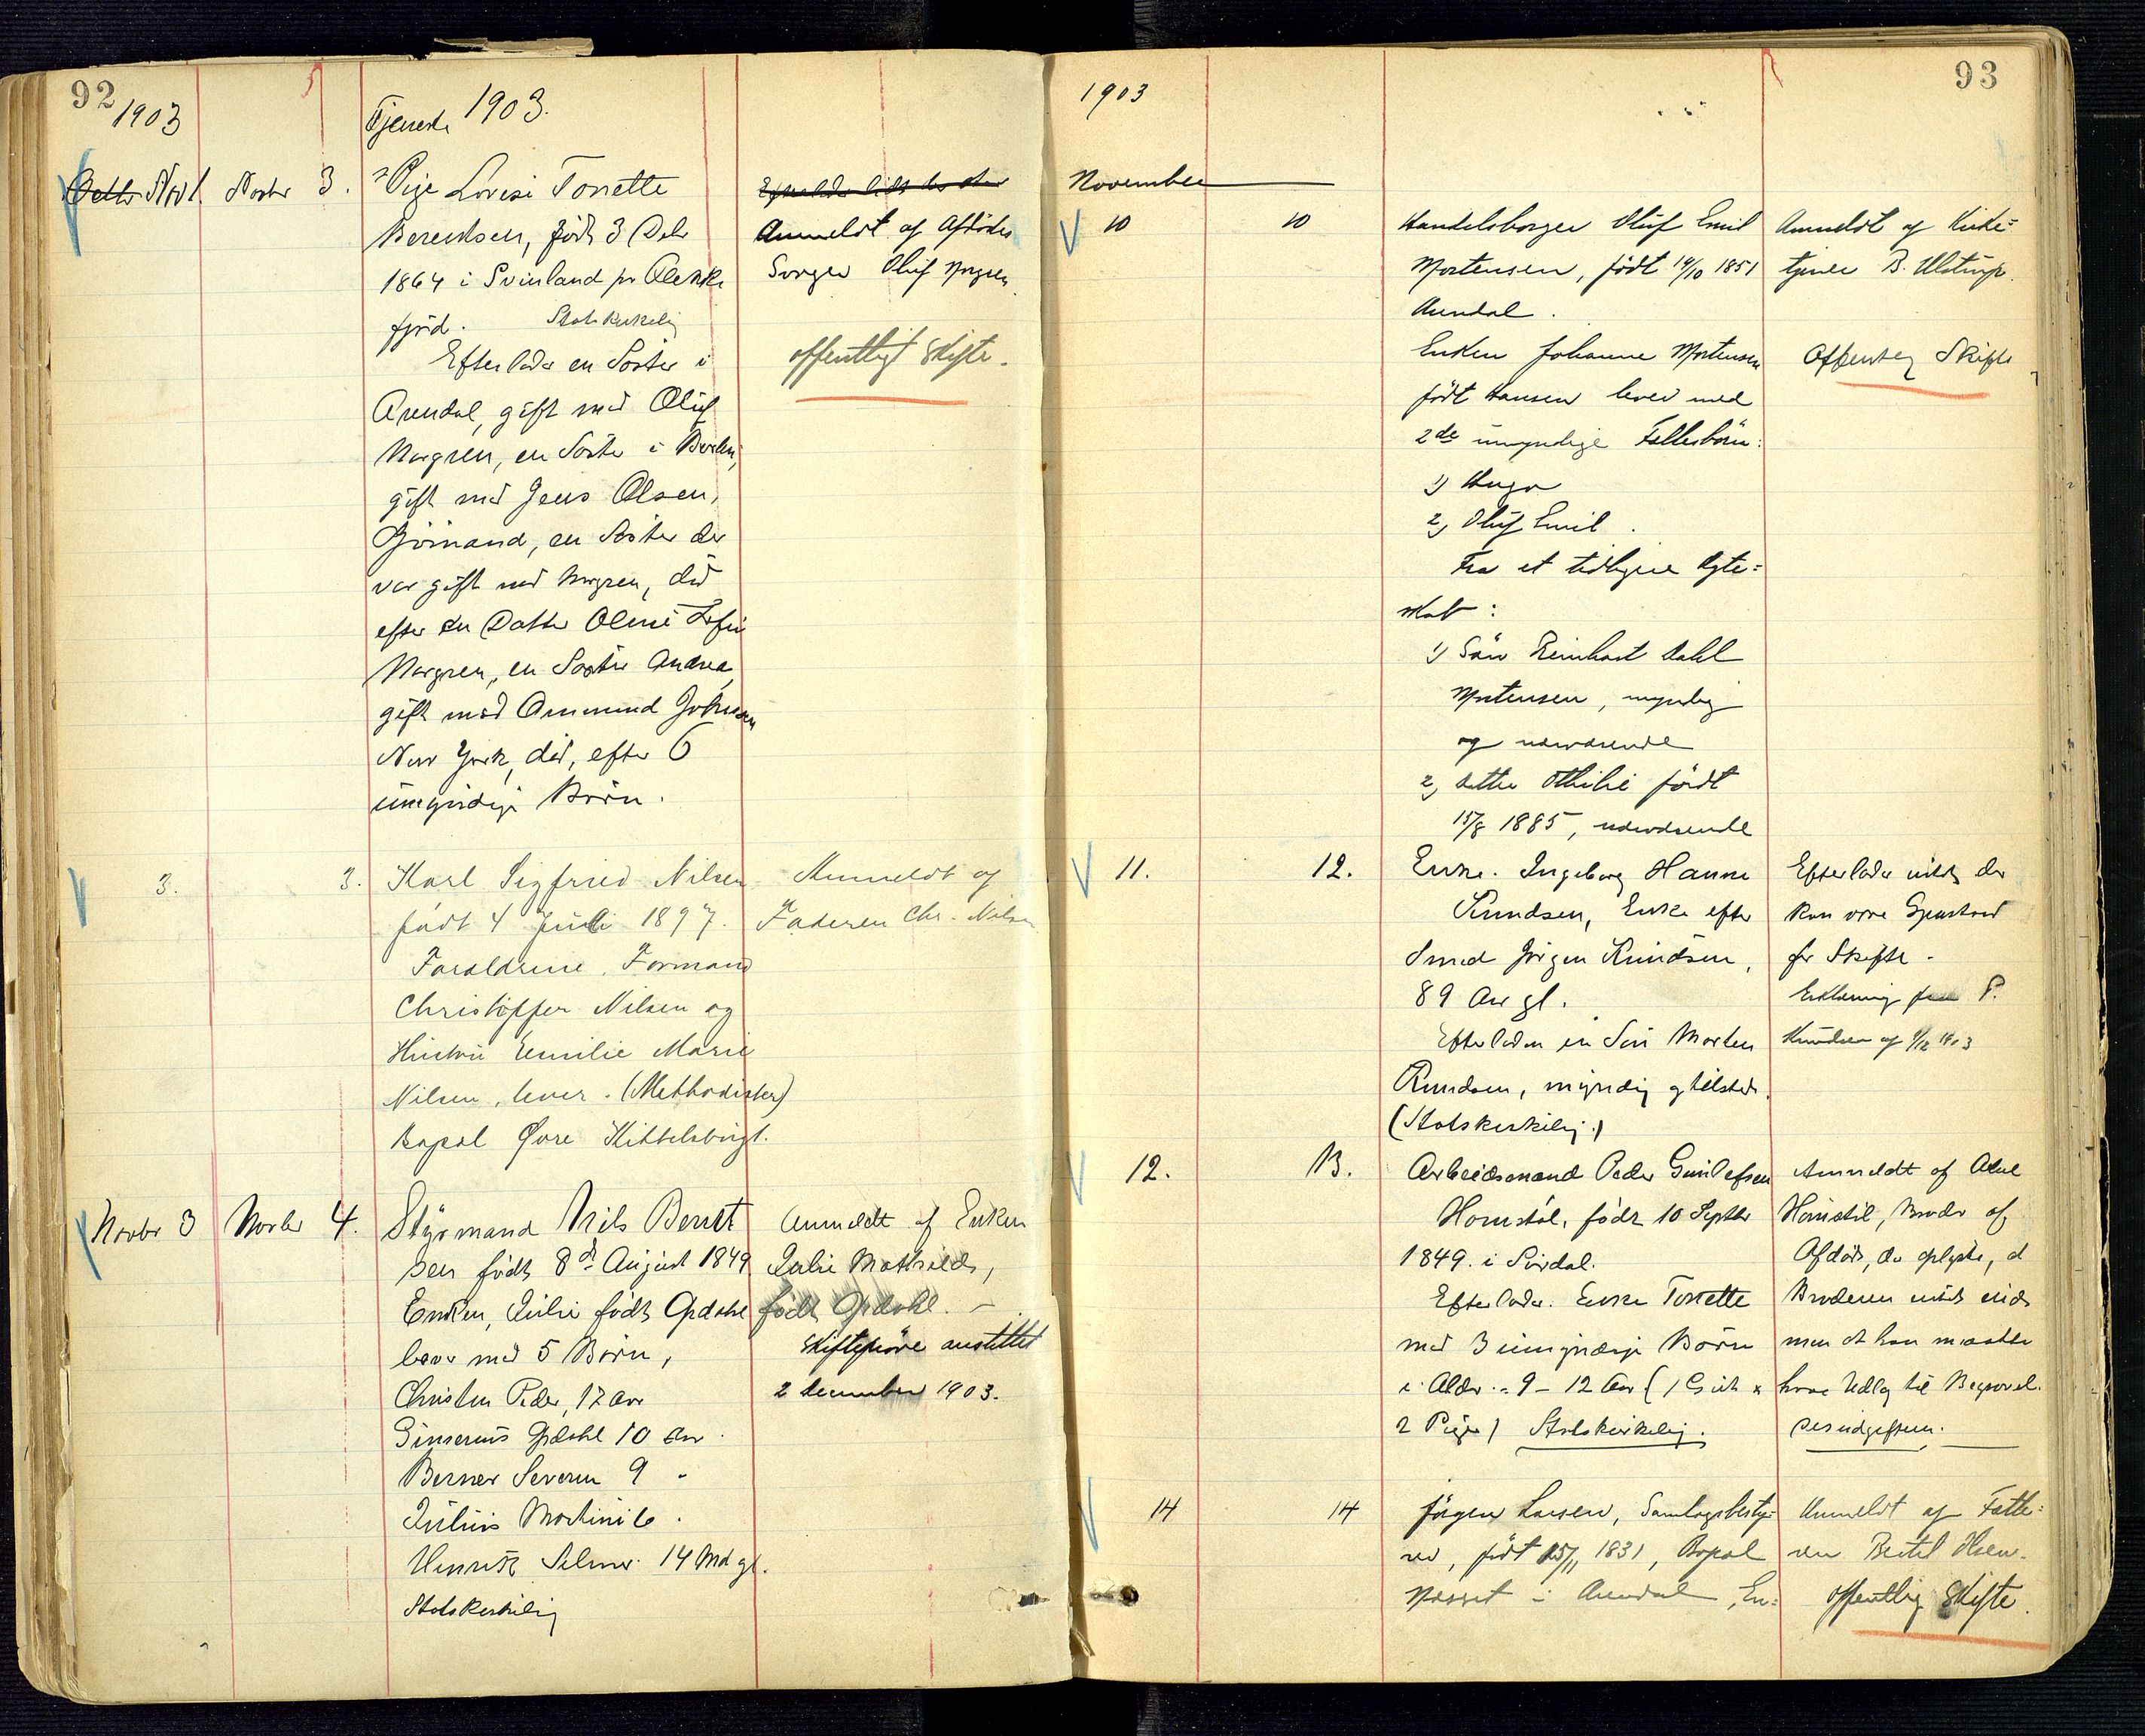 92
1903
1903.
Tjeneste
Octbr Nov 1. Novbr 3.
Pige Lovise Tonette
Berentsen, født 3 Debr
1864 i Svinland pr Flekke
fjord. Statskirkelig
Efterlader en Søster i
Arendal, gift med Oluf
Norgren, en Søster i Bergen,
gift med Jens Olsen,
Sömand, en Søster der
var gift med Norgren, död
efter en Datter Oline Sofie
Norgren, en Søster Andrea
gift med Ommund Johnsen
New York, död, efter 6
umyndige Børn.
Anmeldt af Afdødes
Svoger Oluf Norgren
offentligt Skifte.
3. 3.
Karl Sigfried Nilsen
født 4 Juli 1897.
Forældrene, Formand
Christoffer Nilsen og
Hustru Emilie Marie
Nilsen, lever. (Methodister)
Bopæl Øvre Kittelsbugt.
Anmeldt af
Faderen Chr. Nilsen
Novbr 3 Novbr 4.
Styrmand Nils Bernt
sen født 8de August 1849
Enken, Julie født Opdahl
lever med 5 Børn,
Christen Peder, 17 Aar
Opdahl 10 Aar.
Berner Severin 9 "
Julius Martin 6.
Henrik Selmer 14 Md gl.
Statskirkelig
Anmeldt af Enken
Julie Mathilde,
født Opdahl.
Skifteprøve anstillet
2 December 1903.
93
1903
November
10 10
Handelsborger Oluf Emil
Mortensen, født 14/10 1851
Arendal.
Enken Johanne Mortensen
født Hansen lever med
2de umyndige Fællesbörn:
1) Hugo
2) Oluf Emil.
Fra et tidligere Ægte=
skab:
1) Sön Reinhart Dahl
Mortensen, myndig
og udeværende
2) Datter Othilie født
15/8 1885, udeværende
Anmeldt af Kirke=
tjener B. Ulstrup.
Offentlig Skifte
11. 12.
Enke. Ingeborg Hanne
Knudsen, Enke efter
Smed Jörgen Knudsen,
89 Aar gl.
Efterlader en Sön Morten
Knudsen, myndig og tilstede.
(Statskirkelig.)
Efterlader intet der
kan være Gjenstand
for Skifte.
Erklæring fra P.
Knudsen af 1/12 1903
12. 13.
Arbeidsmand Peder Gunlefsen
Homstöl, født 10 Septbr
1849. i Sirdal.
Efterlader Enke Tonette
med 3 umyndige Børn
i Alder. = 9 - 12 Aar (1 Gut &
2 Piger) Statskirkelig.
Anmeldt af
Homstöl, Broder af
Afdøde, der oplyste, at
Broderen intet eiede
men at han maatte
have Udlæg til Begravel.
sesudgifterne.
14 14
Jörgen Larsen, Samlagsbesty=
rer, født 25/11 1831, Bopæl
i Arendal, En=
Anmeldt af Fatte=
ren Bertel Olsen.
offentlig Skifte.